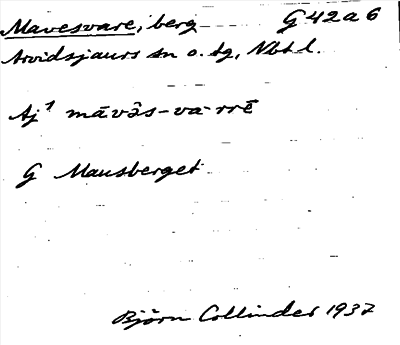 Mavesvare, berg G 42 a 6
Arvidsjaurs sn o. tg, Nbtl.
Aj¹ māvɘ̂s-va·rrē
G Mausberget
Björn Collinder 1937